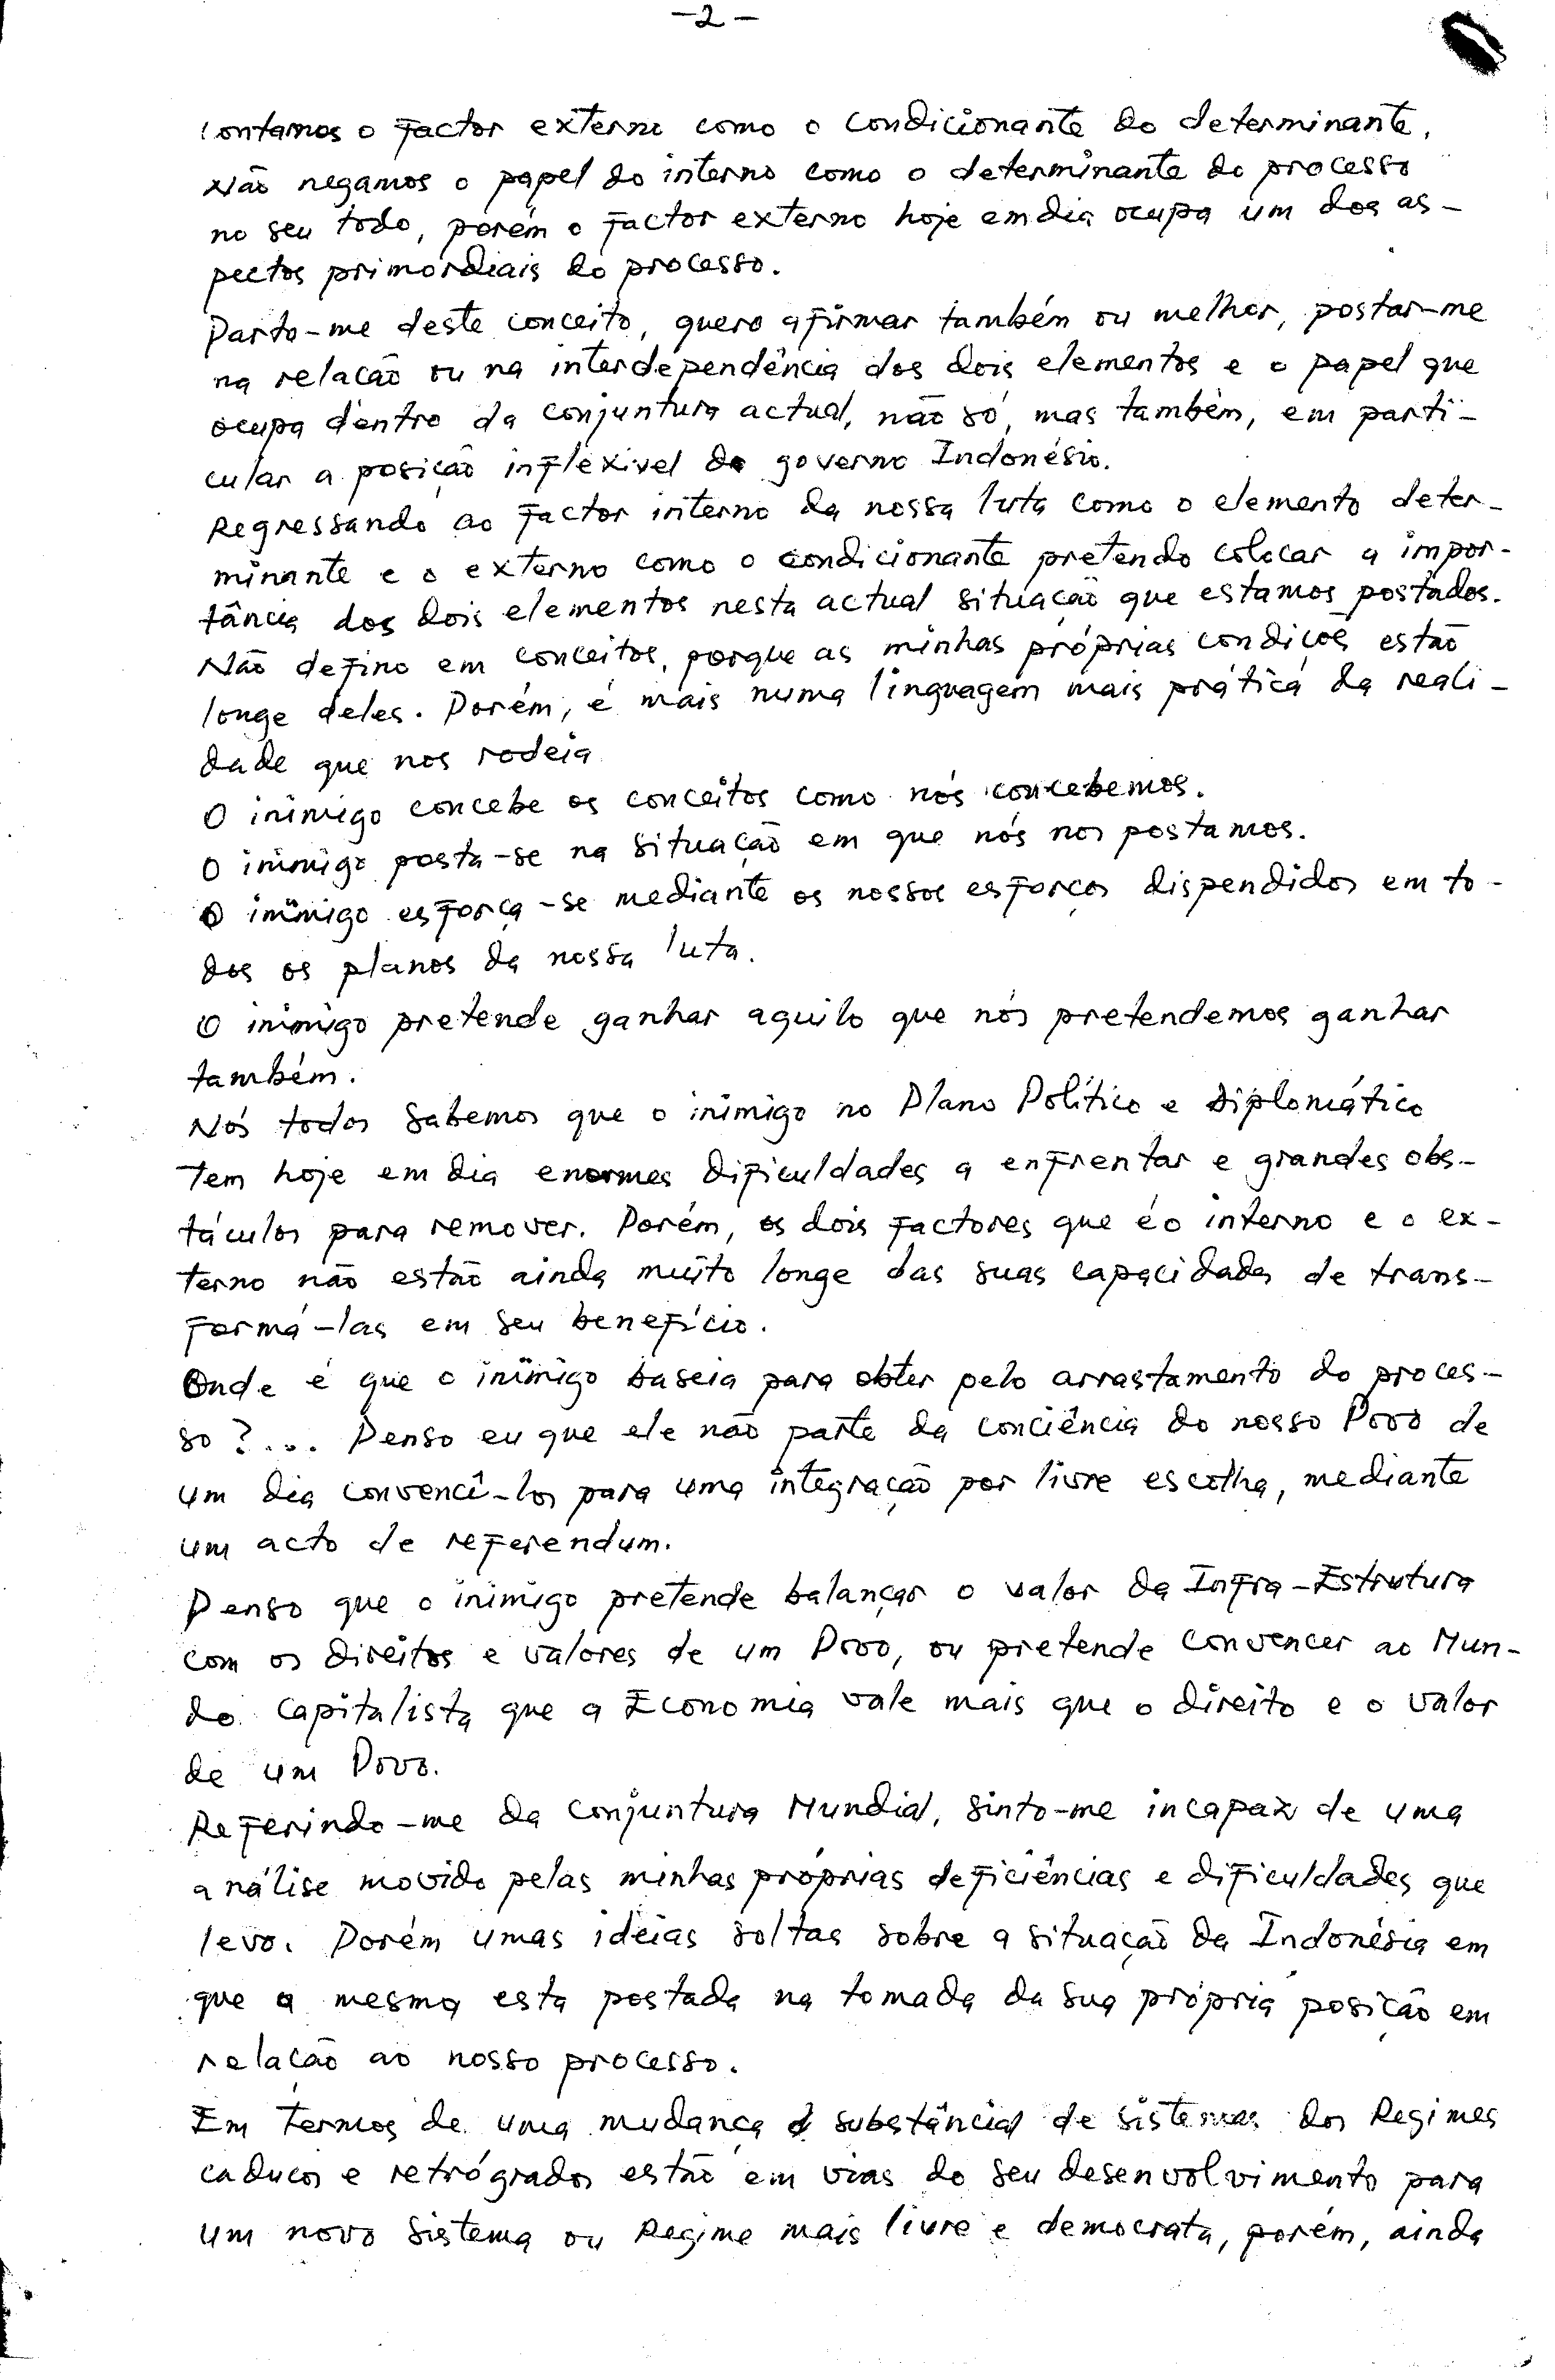 -2-
Contamos o factor externo como o condicionante do determinante.
Não negamos o papel do interno como o determinante do processo
no seu todo, porém o factor externo hoje em dia ocupa um dos as-
pectos primordiais do processo.
Parto-me deste conceito, quero afirmar também ou melhor, postar-me
na relação ou na interdependência dos dois elementos e o papel que
ocupa dentro da conjuntura actual, não só, mas também, em parti-
cular a posição inflexivel do governo Indonésio.
Regressando ao factor interno da nossa luta como o elemento deter-
minante e o externo como o condicionante pretendo colocar a impor-
tância dos dois elementos nesta actual situação que estamos postados.
Não defino em conceitos, porque as minhas próprias condições estão
longe deles. Porém, é mais numa linguagem mais prática da reali-
dade que nos rodeia
O inimigo concebe os conceitos como nós concebemos.
O inimigo posta-se na situação em que nós nos postamos.
O inimigo esforça-se mediante os nossos esforços dispendidos em to-
dos os planos da nossa luta.
O inimigo pretende ganhar aquilo que nós pretendemos ganhar
também.
Nós todos sabemos que o inimigo no Plano Político e diplomático
tem hoje em dia enormes dificuldades a enfrentar e grandes obs-
táculos para remover. Porém, os dois factores que é o interno e o ex-
terno não estão ainda muito longe das suas capacidades de trans-
formá-las em seu benefício.
Onde é que o inimigo baseia para obter pelo arrastamento do proces-
so?... Penso eu que ele não parte da conciência do nosso Povo de
um dia convencê-los para uma integração por livre escolha, mediante
um acto de referendum.
Penso que o inimigo pretende balançar o valor da Infra-Estrutura
com os direitos e valores de um Povo, ou pretende convencer ao Mun-
do Capitalista que a Economia vale mais que o direito e o valor
de um Povo.
Referindo-me da conjuntura Mundial, sinto-me incapaz de uma
análise movido pelas minhas próprias deficiências e dificuldades que
levo. Porém umas idéias soltas sobre a situação da Indonésia em
que a mesma esta postada na tomada da sua própria posição em
relação ao nosso processo.
Em termos de uma mudança substâncial de sistemas dos Regimes
caducos e retrógrados estão em vias do seu desenvolvimento para
um novo sistema ou Regime mais livre e democrata, porém, ainda